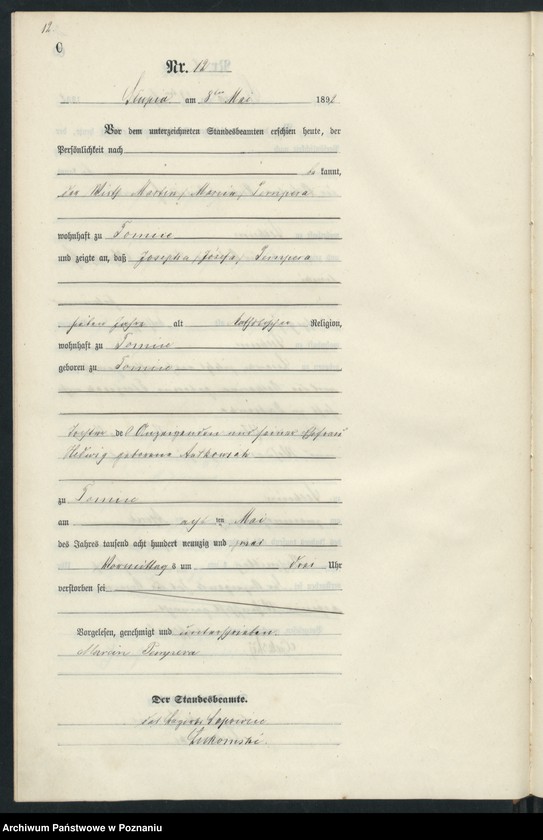 12.
Nr. 12
Słupia am 8ten Mai 1892
Vor dem unterzeichneten Standesbeamten erschien heute, der
Persönlichkeit nach
be kannt,
der Wirth Martin, Marcin, Pempera
wohnhaft zu Tomice
und zeigte an, daß Josepha, Józefa, Pempera
sieben Jahre alt katholischer Religion,
wohnhaft zu Tomice
geboren zu Tomice
Tochter des Anzeigenden und seiner Ehefrau
Hedwig geborene
zu Tomice
am acht ten Mai
des Jahres tausend acht hundert neunzig und zwei
Vormittag s um drei Uhr
verstorben sei
Vorgelesen, genehmigt und unterschrieben
Marcin Pempera
Der Standesbeamte.
des Bezirks
Archiwum Państwowe w Poznaniu